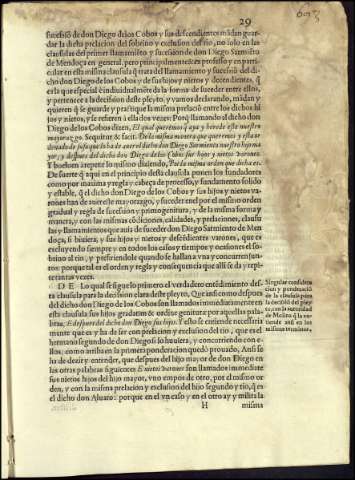 29
sucession de don Diego de los Cobos y sus descendientes mãdan guar-
dar la dicha prelacion del sobrino y exclusion del tio, no solo en las
clausulas del primer llamamiento y sucession de don Diego Sarmiẽto
de Mendoça en general, pero principalmẽte de ex professo y en parti-
cular en esta misma clausula q̃ trata del llamamiento y sucessiõ del di-
cho don Diego de los Cobos y de sus hijos y nietos y decendientes, q̃
es la que especial e indiuidualmẽte da la forma de suceder entre ellos,
y pertenece a la decision deste pleyto, y vamos declarando, mãdan y
quieren q̃ se guarde y practique la misma prelaciõ entre los dichos hi-
jos y nietos, y se refieren à ella dos vezes: Porq̃ llamando el dicho don
Diego de los Cobos dizen, El qual queremos q̃ aya y herede este nuestro
mayorazgo. Sequitur & facit. De la misma manera que queremos y esta or-
denado de suso que lo ha de auer el dicho don Diego Sarmiento nuestro hijo ma
yor, y despues del dicho don Diego de los Cobos sus hijos y nietos varones.
Y bueluen à repetir lo mismo diziendo, Por la misma orden que dicha es.
De suerte q̃ aqui en el principio desta clausula ponen los fundadores
como por maxima y regla y cabeça de processo, y fundamento solido
y estable, q̃ el dicho don Diego de los Cobos y sus hijos y nietos va-
rones han de auer este mayorazgo, y suceder en el por el mismo orden
gradual y regla de sucession y primogenitura, y de la misma forma y
manera, y con las mismas cõdiciones, calidades, y prelaciones, clausu
las y llamamientos que auia de suceder don Diego Sarmiento de Men-
doça, si biuiera, y sus hijos y nietos y descẽdientes varones, que es
excluyendo siempre y en todos los casos y tiempos y ocasiones el so-
brino al tio, y prefiriendole quando se hallan a vna y concurren jun-
tos: porque tal es el orden y regla y consequencia que alli se da y repe-
tiran tantas vezes.
DE Lo qual se sigue lo primero el verdadero entẽdimiento des-
ta clausula para la decision clara deste pleyto, Que assi como despues
del dicho don Diego de los Cobos son llamados inmediatamente en
esta clausula sus hijos gradatim & ordine genitura por aquellas pala-
bras, E despues del dicho don Diego sus hijos. Y esto es cierto y euidente-
mente que es y ha de ser con prelacion y exclusion del tio, que es el
hermano segundo de don Diego si lo vuiera, y concurriendo con e-
llos: como arriba en la primera ponderacion quedò prouado, Ansi se
ha de dezir y entender, que despues del hijo mayor de don Diego en
las otras palabras siguientes E nietos varones son llamados immediatè
sus nietos hijos del hijo mayor, vno empos de otro, por el mismo or-
den, y con la misma prelacion y exclusion del hijo segundo y tio, q̃ es
el dicho don Aluaro: porque en el vn caso y en el otro ay y milita la
H misma
Singular considera
cion y ponderaciõ
de la clausula para
la decisiõ del pley
to, con la autoridad
de Molina q̃ la en-
tiende ansi en los
mismos terminos.